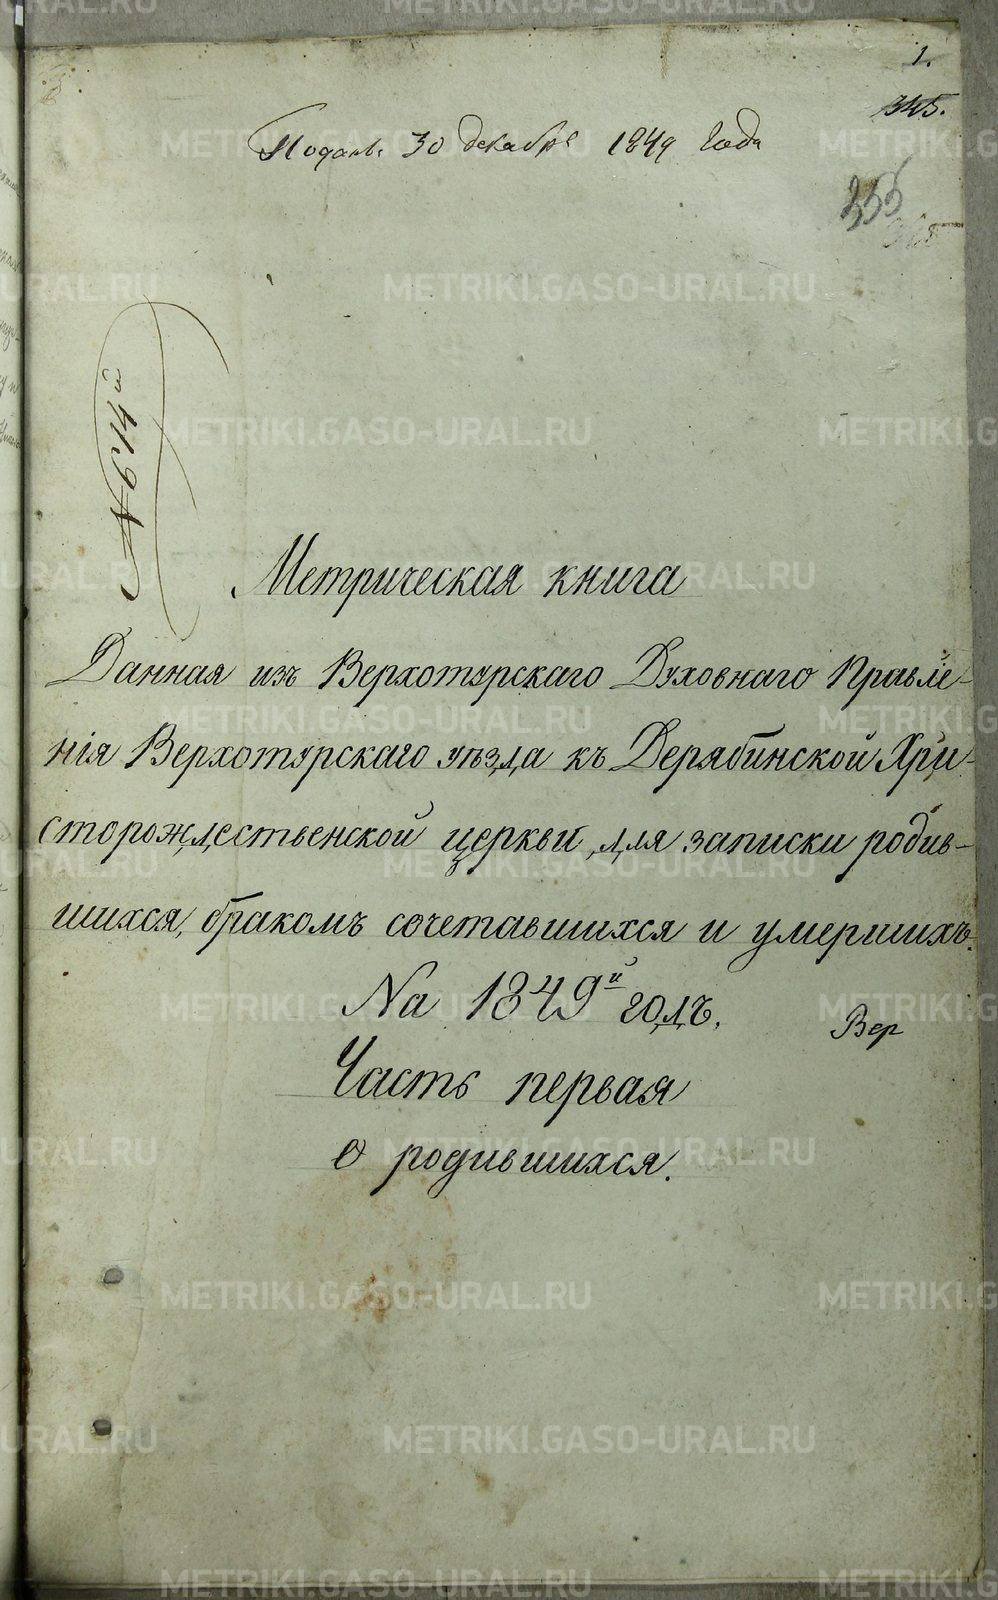 1.
345.
Подана 30 декабря 1849 года
355
Метрическая книга
Данная изъ Верхотурскаго Духовнаго Правле-
нія Верхотурскаго уѣзда къ Дерябинской Хри-
сторождественской церкви, для записки родив-
шихся, бракомъ сочетавшихся и умершихъ.
На 1849й годъ.
Вер
Часть первая
о родившихся.
METRIKI.GASO-URAL.RU